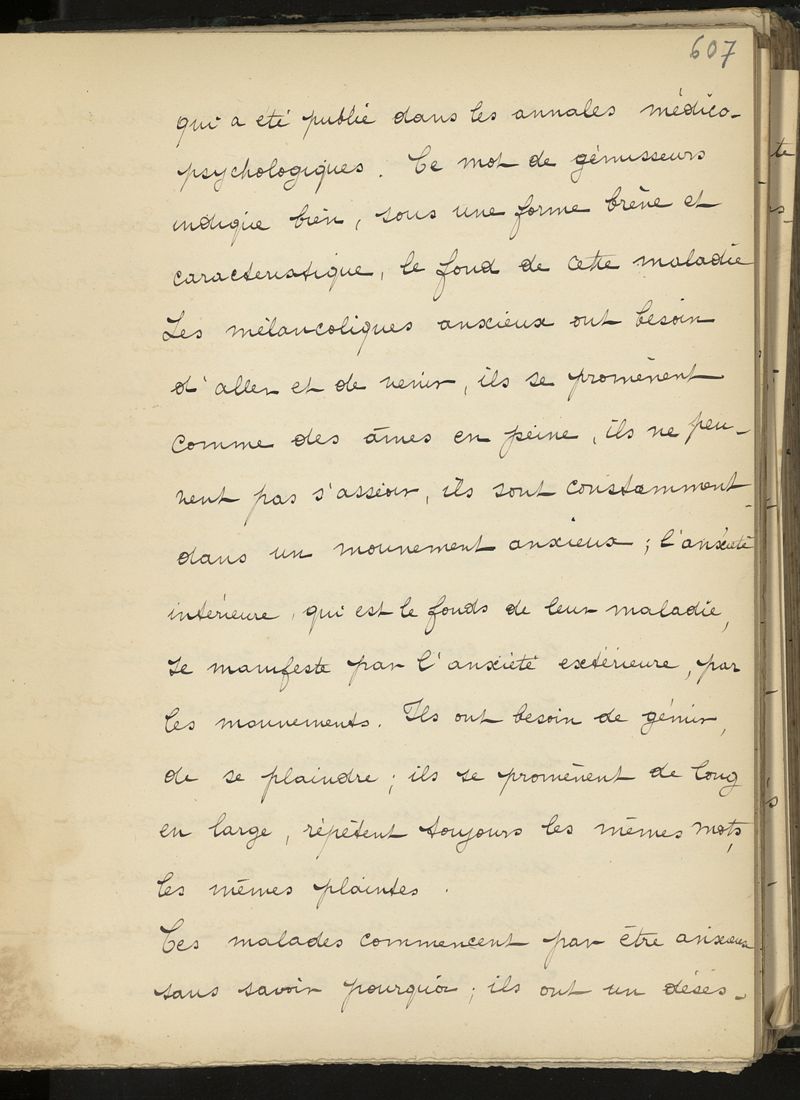 607
qui a été publié dans les annales médico-
psychologiques. Ce mot de gémisseurs
indique bien, sous une forme brève et
caracteristique, le fond de cette maladie
Les mélancoliques anxieux ont besoin
d'aller et de venir, ils se promènent
comme des âmes en peine, ils ne peu-
vent pas s'asseoir, ils sont constamment
dans un mouvement anxieux ; l'anxiété
intérieure, qui est le fonds de leur maladie,
se manifeste par l'anxiété extérieure, par
les mouvements. Ils ont besoin de gémir,
de se plaindre ; ils se promènent de long
en large, répètent toujours les mêmes mots,
les mêmes plaintes.
Ces malades commencent par être anxieux
sans savoir pourquoi ; ils ont un désés-
te
s-
s